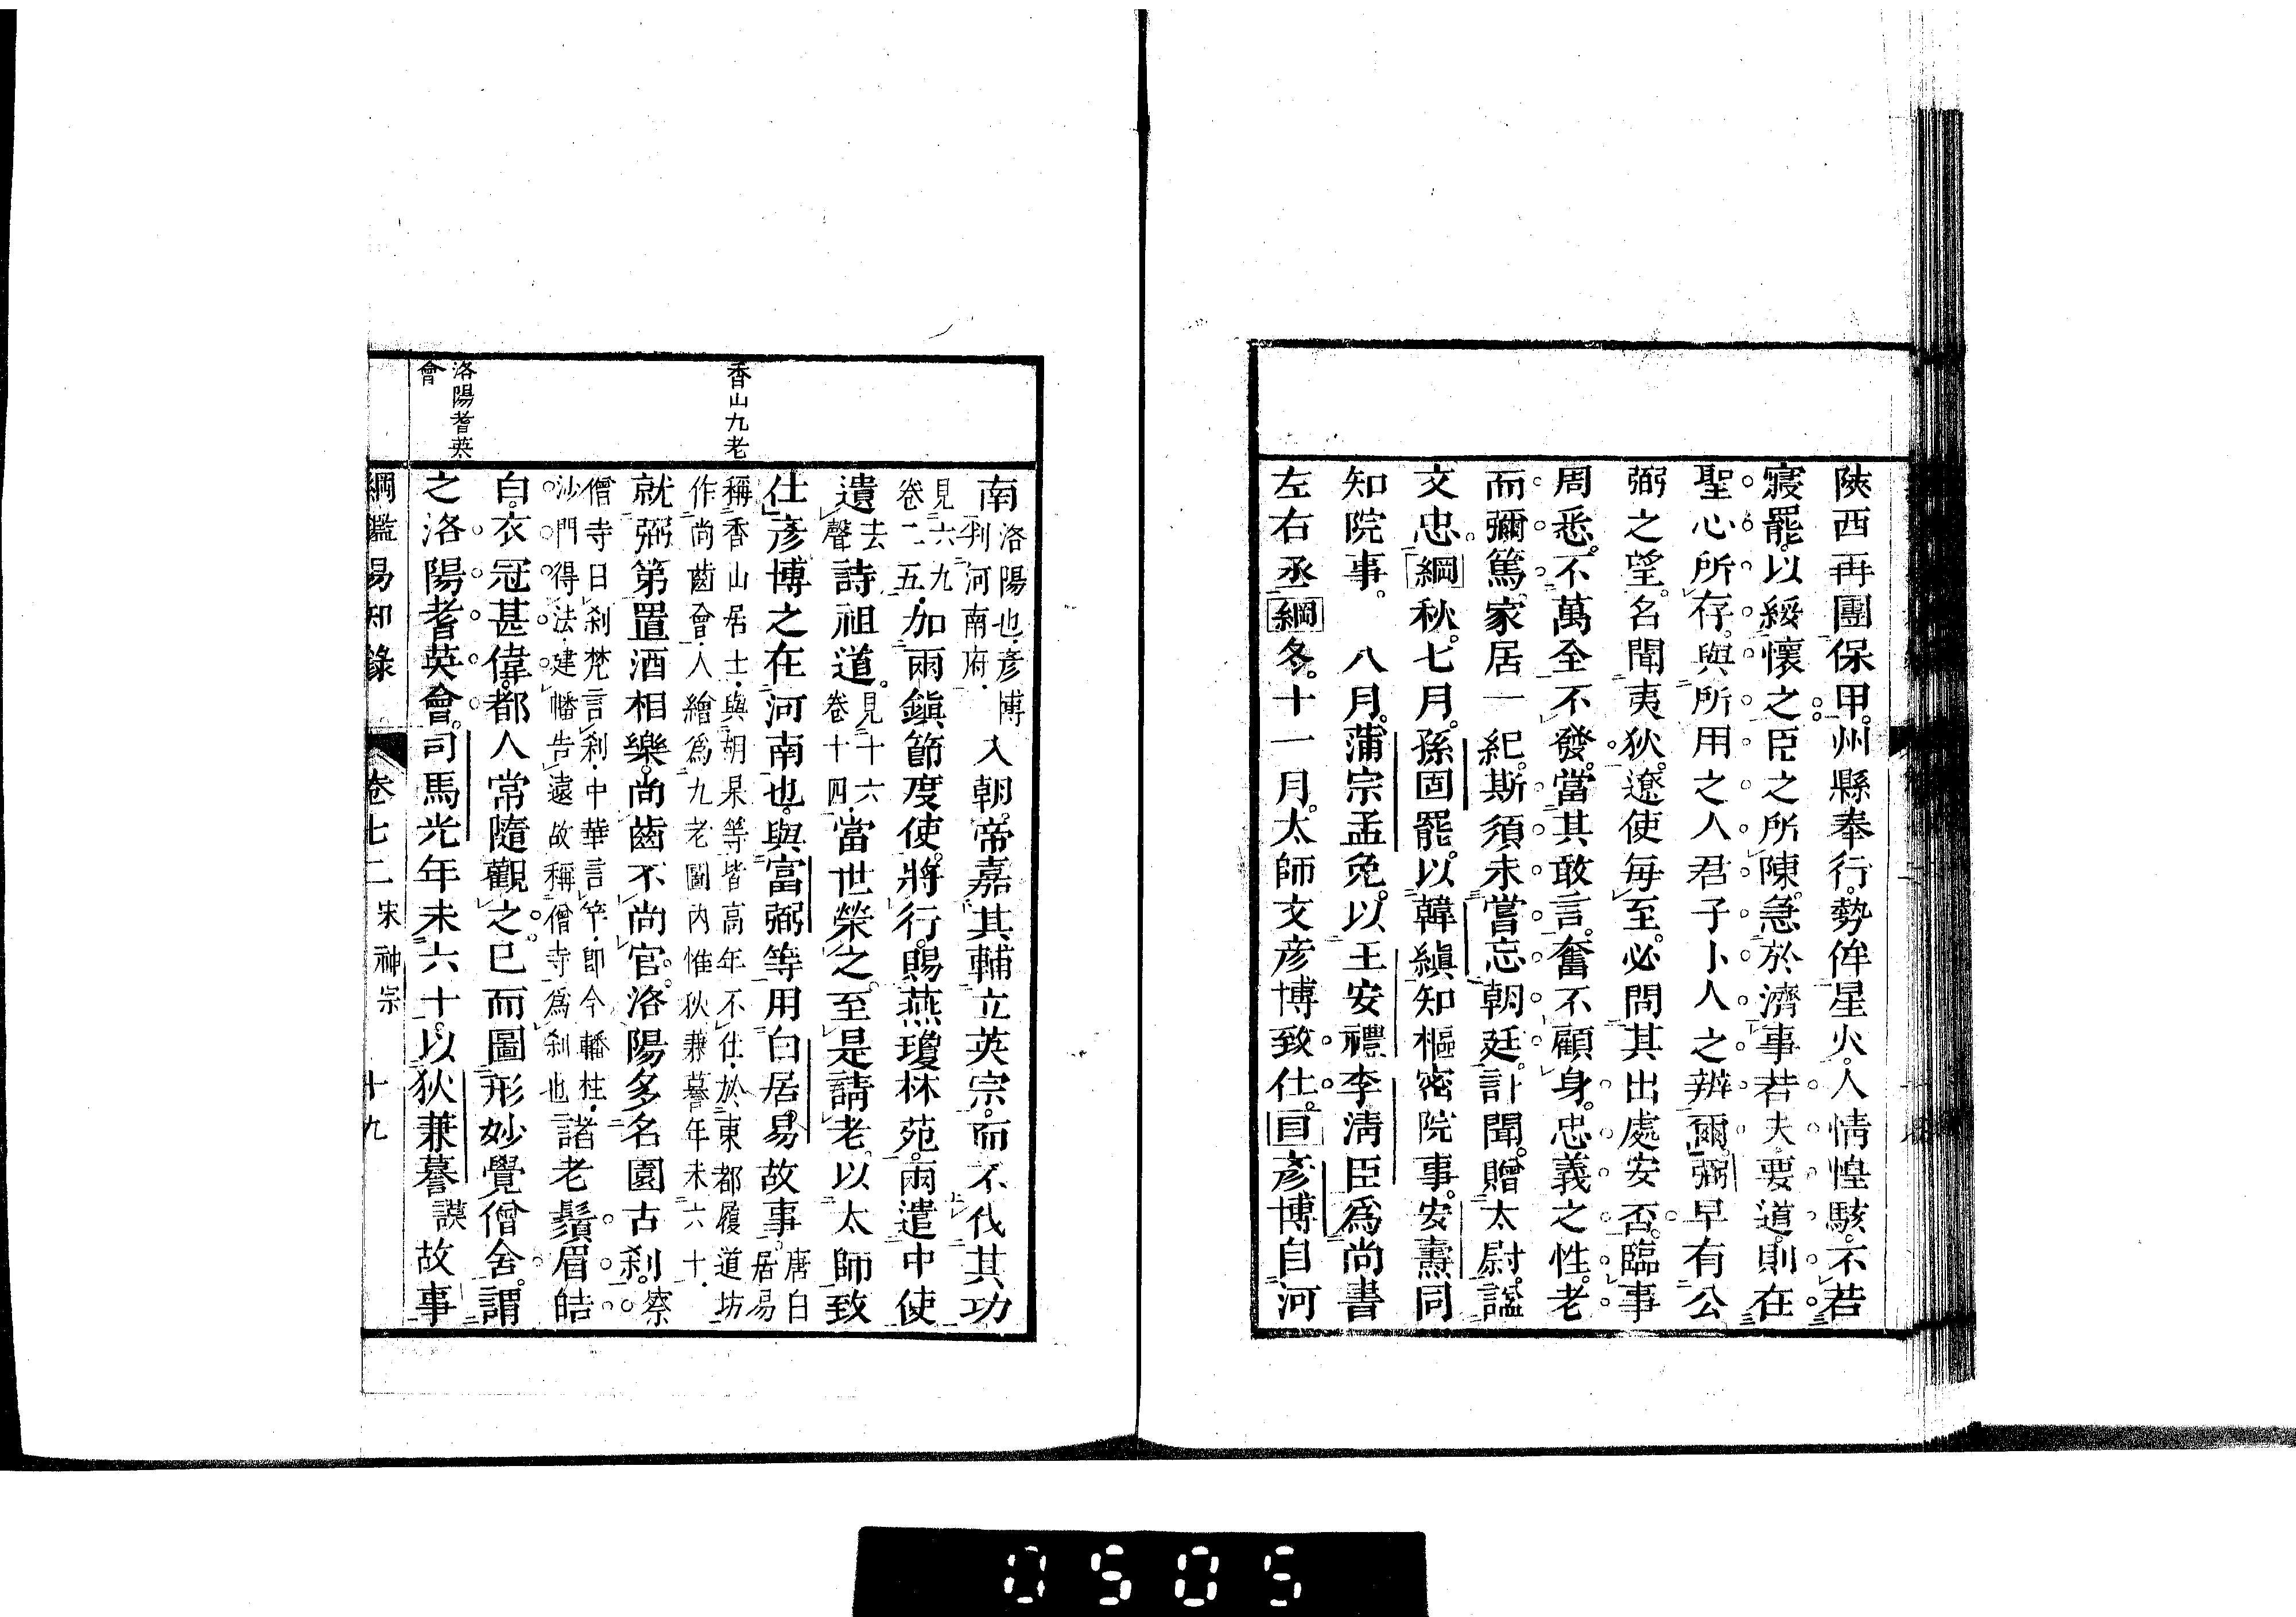 陝西再團保甲。州縣奉行。勢侔星火。人情惶駭。不若
寢罷。以綏懷之。臣之所陳。急於濟事。若夫要道。則在
聖心所存。與所用之人君子小人之辨爾。」弼早有公
弼之望。名聞夷狄。遼使每至。必問其出處安否。臨事
周悉。不萬全不發。當其敢言。奮不顧身。忠義之性。老
而彌篤。家居一紀。斯須未嘗忘朝廷。訃聞。贈太尉。諡
文忠。綱秋。七月。孫固罷。以韓縝知樞密院事。安燾同
知院事。 八月。蒲宗孟免。以王安禮李淸臣爲尚書
左右丞。綱冬。十一月。太師文彥博致仕。目彥博自河
香山九老
洛陽耆英
會
南洛陽也彥博
判河南府入朝。帝嘉其輔立英宗。而不伐其功
見六九
卷二五加兩鎭節度使。將行。賜燕瓊林苑。兩遣中使
遺去
聲詩祖道。見十六
卷十四當世榮之。至是請老。以太師致
仕」彥博之在河南也。與富弼等用白居易故事。唐白
居易
稱香山居士與胡杲等皆高年不仕於東都履道坊
作尚齒會人繪爲九老圖內惟狄兼謩年未六十
就弼第置酒相樂。尚齒不尚官。洛陽多名園古刹。察
僧寺曰刹梵言刹中華言竿卽今旛柱
沙門得法建幡告遠故稱僧寺爲刹也諸老鬚眉皓
白。衣冠甚偉。都人常隨觀之。已而圖形妙覺僧舍。謂
之洛陽耆英會。司馬光年未六十。以狄兼謩謨故事
綱鑑易知錄 卷七二 宋神宗 十九
0505